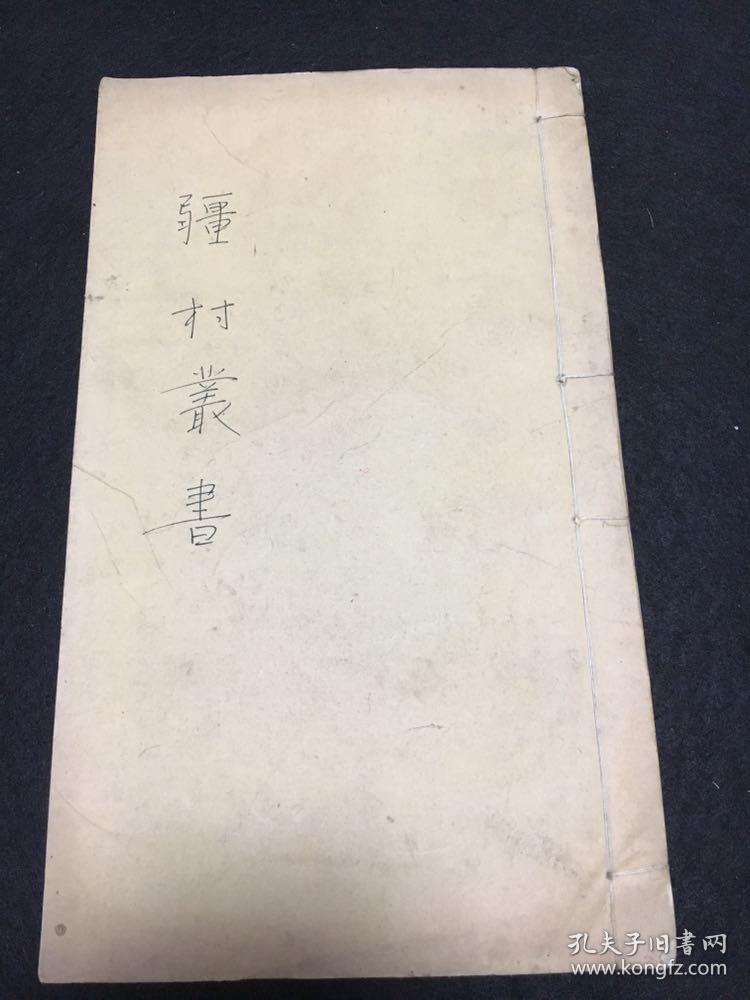 彊村叢書
孔夫子旧書网
www.kongfz.com